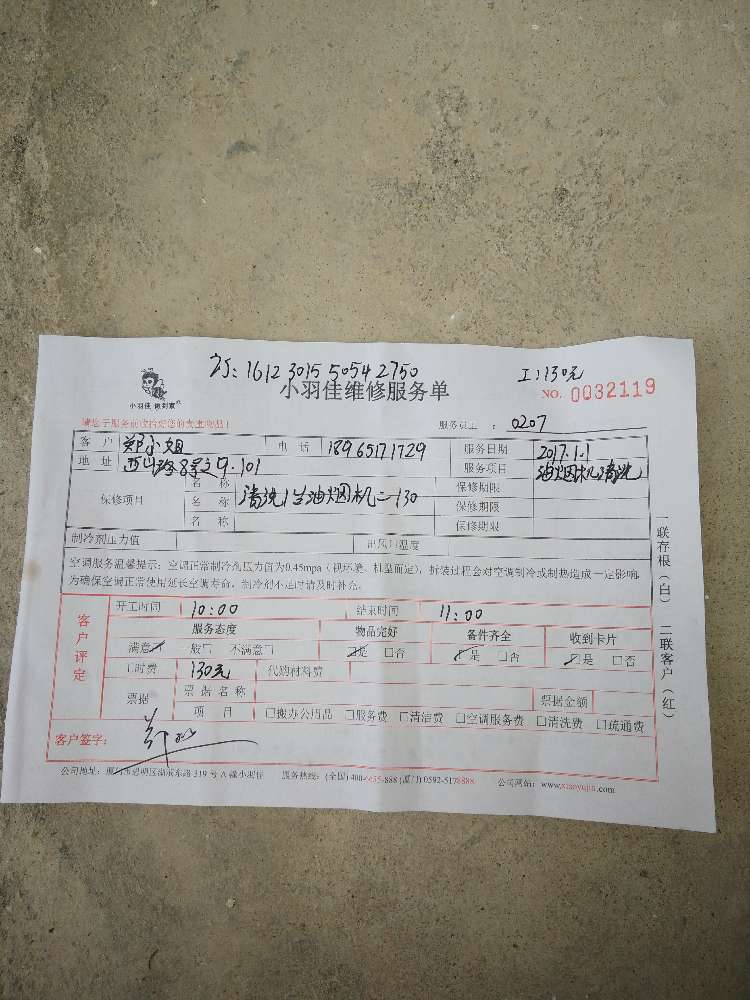 1612 3015 5054 2750
工:130元
小羽佳 微到家
小羽佳维修服务单
NO. 0032119
服务员工 : 0207
客 户 郑小姐 电 话 18965171729 服务日期 2017.1.1
地 址 101 服务项目 油烟机清洗
名 称 保修期限
保修项目 名 称 清洗1台油烟机=130 保修期限
名 称 保修期限
制冷剂压力值 出风口温度
空调服务温馨提示:空调正常制冷剂压力值为0.45mpa(视环境、机型而定),拆装过程会对空调制冷或制热造成一定影响,
为确保空调正常使用延长空调寿命,制冷剂不足时请及时补充。
一联存根(白) 二联客户(红)
客户评定
开工时间 10:00 结束时间 11:00
服务态度 物品完好 备件齐全 收到卡片
满意☑ 一般□ 不满意□ ☑是 □否 ☑是 □否 ☑是 □否
工时费 130元 代购材料费
票据 票据名称 票据金额
项 目 □搬办公用品 □服务费 □清洁费 □空调服务费 □清洗费 □疏通费
客户签字:
公司地址:厦门市思明区湖滨东路319号A幢小羽佳 服务热线:(全国)400-6655-888 (厦门)0592-5178888 公司网站:www.xiaoyujia.com